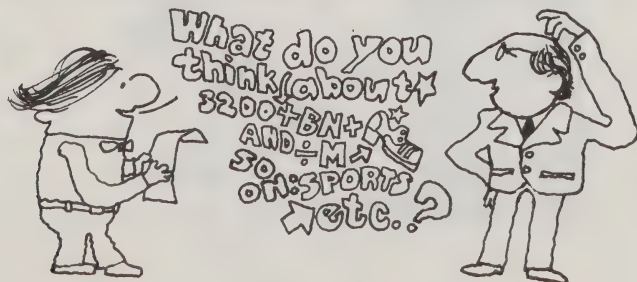 What do you
think(about☆
3200+BN+
AND÷M↗
SO
ON:SPORTS
↗etc..?